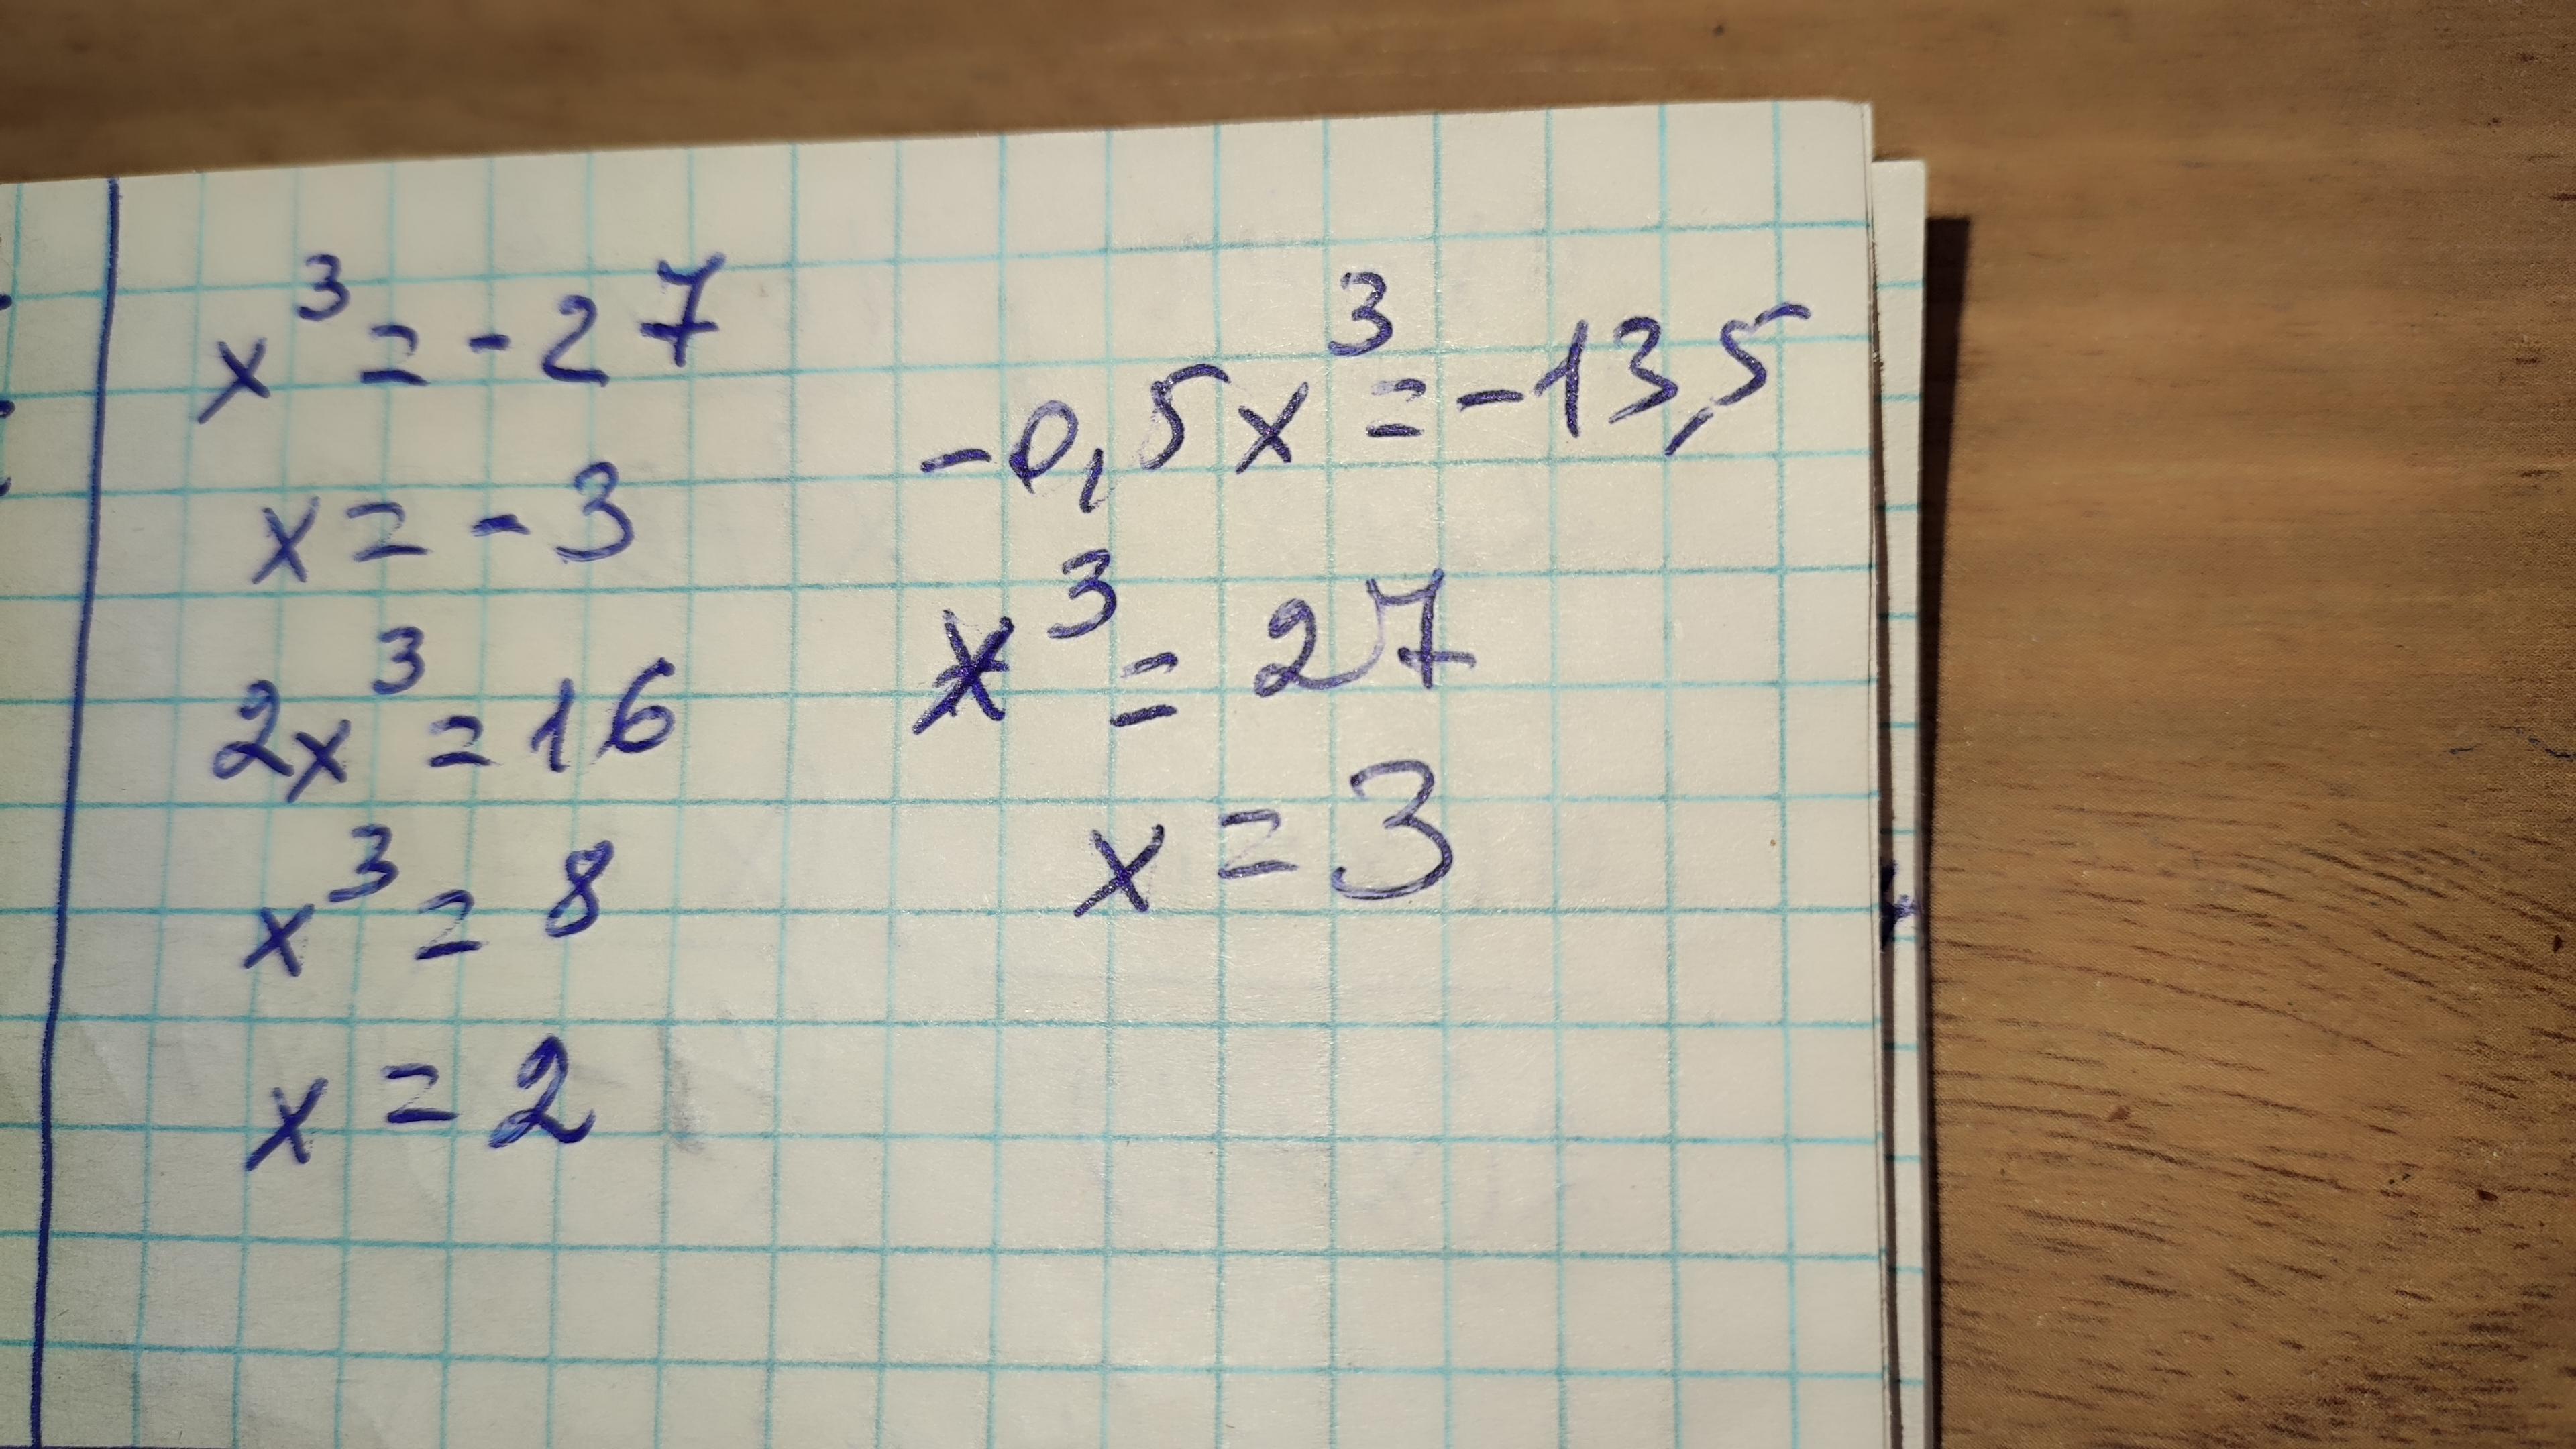 x³ = -27
x = -3
2x³ = 16
x³ = 8
x = 2
-0,5x³ = -13,5
x³ = 27
x = 3